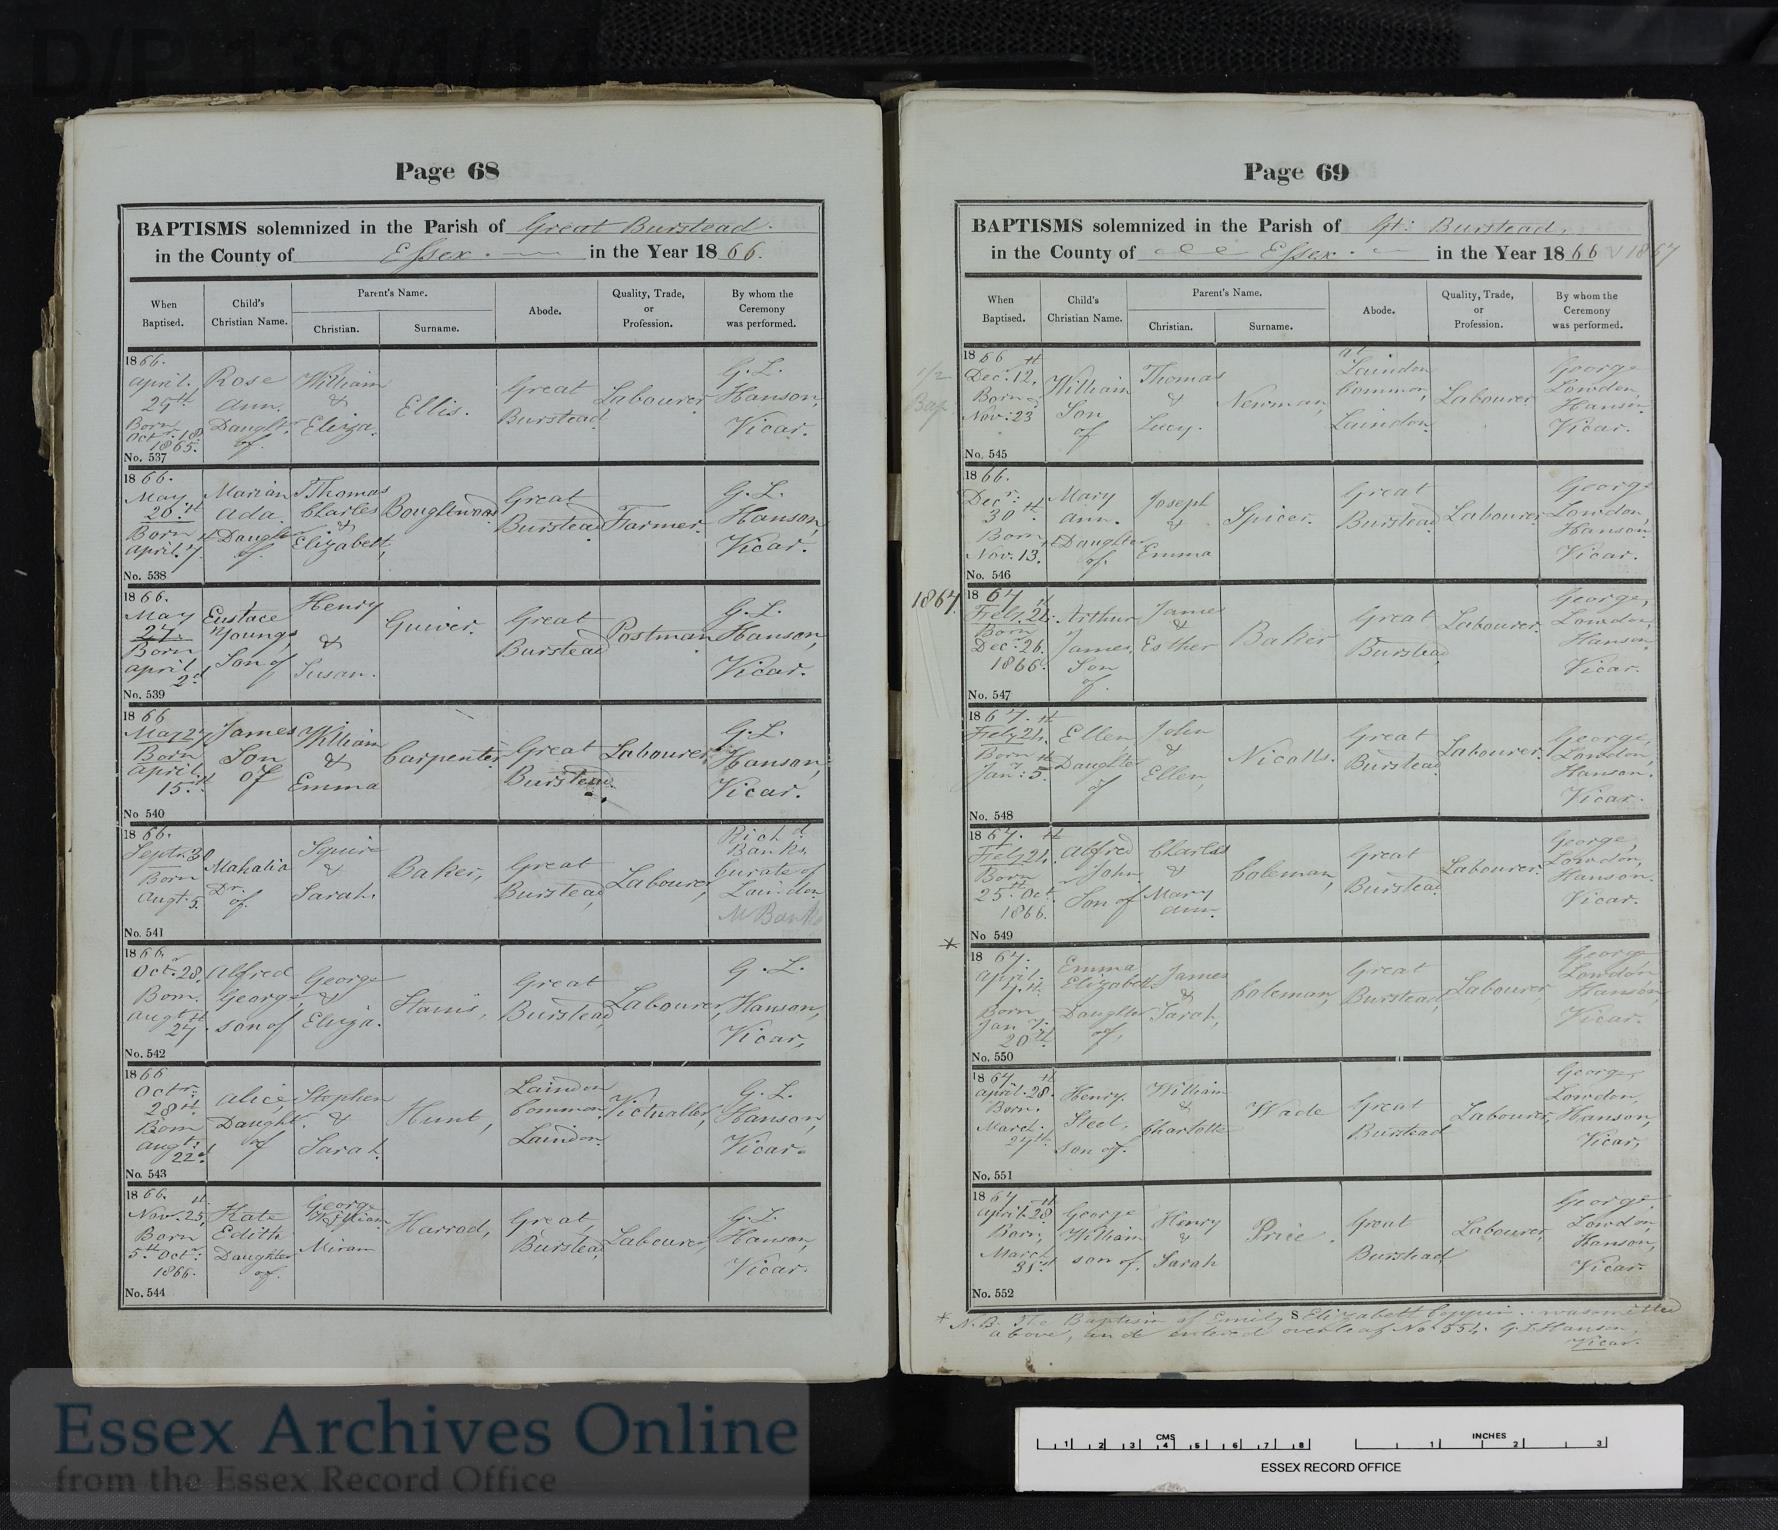 D/P 139/1/14
Page 68
BAPTISMS solemnized in the Parish of Great Burstead.
in the County of Essex. in the Year 1866.
When Baptised.
Child's Christian Name.
Parent's Name.
Christian.
Surname.
Abode.
Quality, Trade, or Profession.
By whom the Ceremony was performed.
1866.
April.
29th
Born
Octr. 18.
1865.
No. 537
Rose
Ann.
Daughtr.
of.
William
&
Eliza.
Ellis.
Great
Burstead
Labourer
G. L.
Hanson,
Vicar.
1866.
May
20.th
Born
April 7th
No. 538
Marian
Ada.
Daughter
of.
Thomas
Charles
&
Elizabeth
Boughtwood
Great
Burstead
Farmer.
G. L.
Hanson,
Vicar.
1866.
May
27.
Born
April
2d
No. 539
Eustace
Youngs,
Son of
Henry
&
Susan.
Quiver.
Great
Burstead
Postman
G. L.
Hanson,
Vicar.
1866
May 27
Born
April
15.th
No 540
James
Son
of
William
&
Emma
Carpenter
Great
Burstead.
Labourer,
G. L.
Hanson,
Vicar.
1866.
Septr. 30
Born
Augt. 5.
No. 541
Mahalia
Dr.
of.
Squire
&
Sarah.
Baker,
Great
Burstead
Labourer,
Richd.
Banks,
Curate of
Laindon
Banks
1866.
Octr. 28.
Born.
Augt
27th
No. 542
Alfred
George,
son of
George
&
Eliza.
Great
Burstead,
Labourer,
G. L.
Hanson,
Vicar,
1866
Octr.
28th.
Born
Augt:
22d
No. 543
Alice,
Daught.
of
Stephen
&
Sarah.
Hunt,
Laindon
Common,
Laindon.
Victualler,
G. L.
Hanson,
Vicar.
1866.
Nov. 25th,
Born
5th Octr:
1866.
No. 544
Kate
Edith
Daughter
of.
George
William
&
Miram
Harrod,
Great,
Burstead
Labourer,
G. L.
Hanson,
Vicar.
Page 69
BAPTISMS solemnized in the Parish of Gt: Burstead,
in the County of Essex. in the Year 1866 1867
When Baptised.
Child's Christian Name.
Parent's Name.
Christian.
Surname.
Abode.
Quality, Trade, or Profession.
By whom the Ceremony was performed.
1866
Decr. 12th.
Born
Nov: 23d
No. 545
William
Son
of
Thomas
&
Lucy.
Newman,
at
Laindon
Common,
Laindon.
Labourer
George
Lowdon,
Hanson.
Vicar.
1866.
Decr:
30th.
Born
Nov. 13.th
No. 546
Mary
Ann.
Daughter
of.
Joseph
&
Emma
Spicer.
Great
Burstead
Labourer
George
Lowdon,
Hanson.
Vicar.
1867.
1867
Feby. 24th
Born
Decr. 26.
1866.
No. 547
Arthur
James,
Son
of.
James
&
Esther
Baker
Great
Burstead,
Labourer.
George,
Lowdon,
Hanson.
Vicar.
1867.
Feby 24th.
Born
Jany: 5th
No. 548
Ellen
Daughter
of
John
&
Ellen,
Nicolls.
Great
Burstead
Labourer.
George,
Lowdon,
Hanson.
Vicar.
1867.
Feby 24th.
Born
25th Oct.
1866.
No 549
Alfred
John,
Son of
Charles
&
Mary
Ann.
Coleman,
Great
Burstead
Labourer.
George,
Lowdon,
Hanson.
Vicar.
*
1867.
April.
Born
Jany.
20th
No. 550
Emma
Elizabeth
Daughter
of,
James
&
Sarah,
Coleman,
Great
Burstead,
Labourer,
George
Lowdon
Hanson,
Vicar.
1867
April. 28th.
Born.
March.
27th.
No. 551
Henry.
Steel,
Son of.
William
&
Charlotte
Wade
Great
Burstead
Labourer,
George,
Lowdon,
Hanson,
Vicar,
1867
April 28th
Born,
March
31st
No. 552
George
William
son of.
Henry
&
Sarah
Price.
Great
Burstead
Labourer,
George,
Lowdon
Hanson,
Vicar.
* N.B. The Baptism of Emily Elizabeth Coppin. was omitted
above, and entered overleaf No. 554. G. L. Hanson,
Vicar.
Essex Archives Online
from the Essex Record Office
CMS
1 2 3 4 5 6 7 8
INCHES
1 2 3
ESSEX RECORD OFFICE